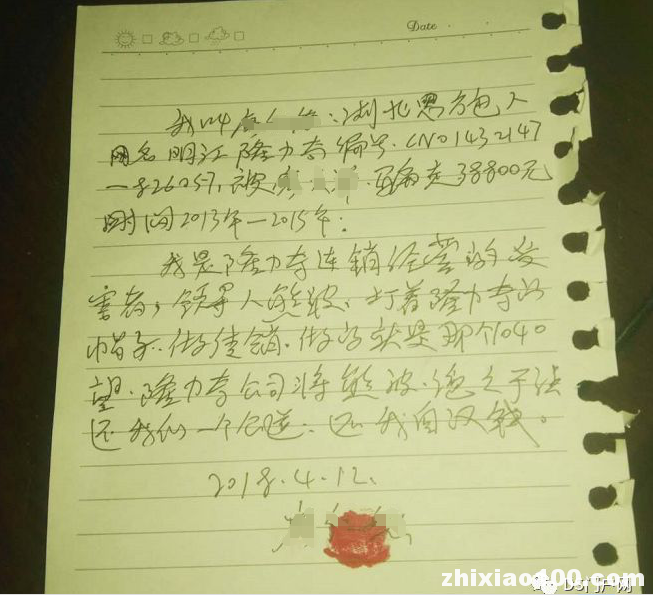 Date
我叫 湖北恩方包人
网名明江隆力奇编号.CN01432147
-826057,被 骗走38800元
时间2013年-2015年;
我是隆力奇连锁经营的受
害者,领导人熊波.打着隆力奇的
帽子.做传销.做的就是那个1040
望.隆力奇公司将熊波.绳之于法
还我们一个公道.还我血汗钱。
2018.4.12.
zhixiao100.com